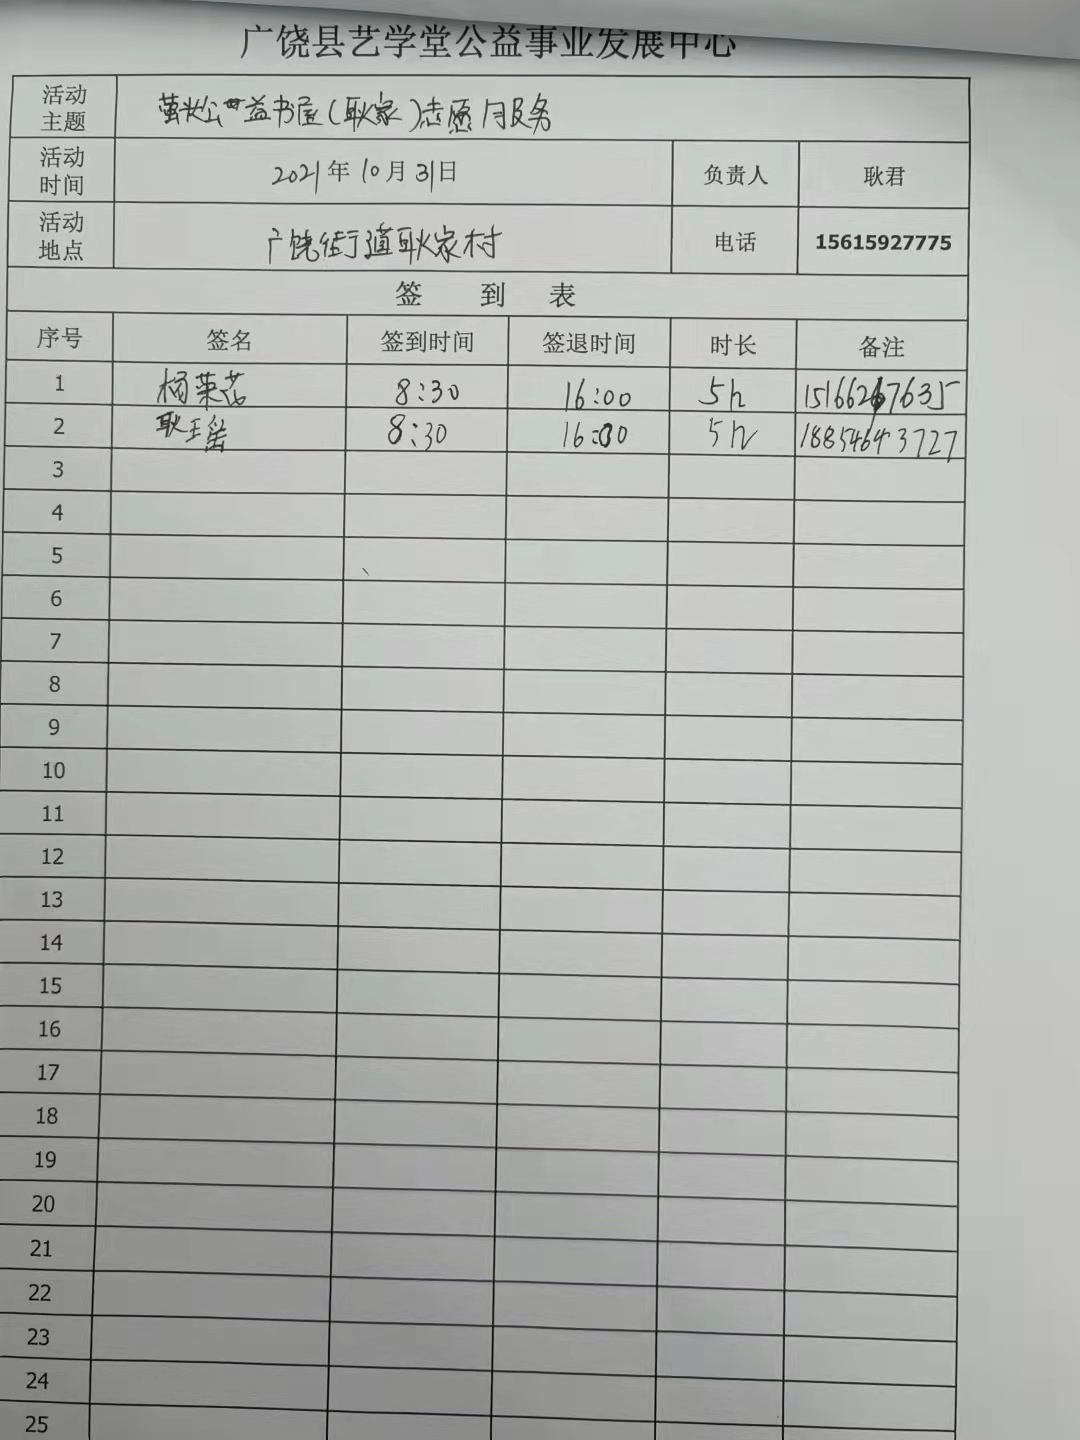 广饶县艺学堂公益事业发展中心
活动主题 萤火公益书屋(耿家)志愿服务
活动时间 2021年10月31日 负责人 耿君
活动地点 广饶街道耿家村 电话 15615927775
签 到 表
序号 签名 签到时间 签退时间 时长 备注
1 杨荣茗 8:30 16:00 5h 15166267635
2 耿瑶 8:30 16:00 5h 18854643727
3
4
5
6
7
8
9
10
11
12
13
14
15
16
17
18
19
20
21
22
23
24
25